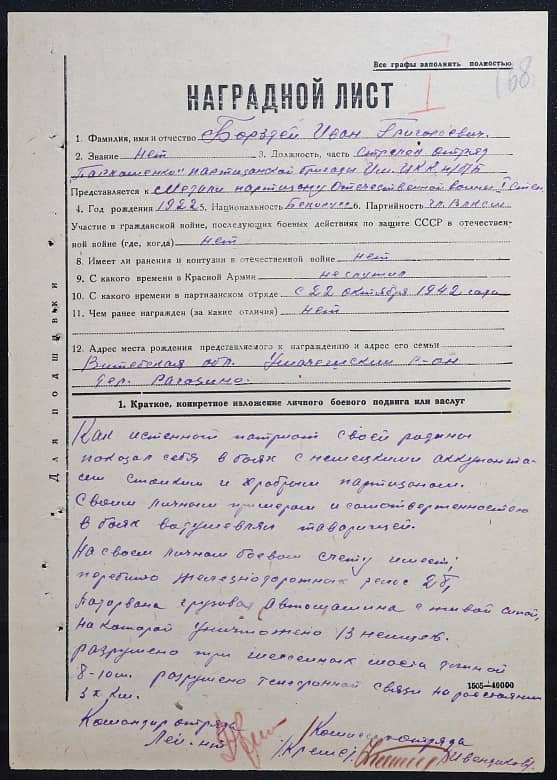 Все графы заполнить полностью
168
I
НАГРАДНОЙ ЛИСТ
1. Фамилия, имя и отчество Борздей Иван Григорьевич.
2. Звание нет 3. Должность, часть Стрелок отряд
партизанской бригады Им. ЦК КП/б/Б
Представляется к Медали партизану Отечественной войны I степ
4. Год рождения 1922 5. Национальность Белорусс 6. Партийность Чл. ВЛКСМ
Участие в гражданской войне, последующих боевых действиях по защите СССР в отечествен-
ной войне (где, когда) нет
8. Имеет ли ранения и контузии в отечественной войне нет
9. С какого времени в Красной Армии не служил
10. С какого времени в партизанском отряде с 22 октября 1942 года
11. Чем ранее награжден (за какие отличия) нет
12. Адрес места рождения представляемого к награждению и адрес его семьи
Витебская обл. Ушачский р-он
дер.
Для подшивки
1. Краткое, конкретное изложение личного боевого подвига или заслуг
Как истенный патриот своей родины
показал себя в боях с немецкими оккупанта-
стойким и храбрым партизаном.
Своим личным примером и самотверженностью
в боях водушевлял таварищей.
На своем личном боевом счету имеет;
перебито железнодорожных рельс
Падорвана грузовая автомашина с живой силой,
на которой уничтожено 13 немцев.
разрушено три шоссейных моста длиной
8-10м. разрушено телефонной связи на расстоянии
3х км.
1505—40000
Командир отряда
Лей-нт
Комиссар отряда